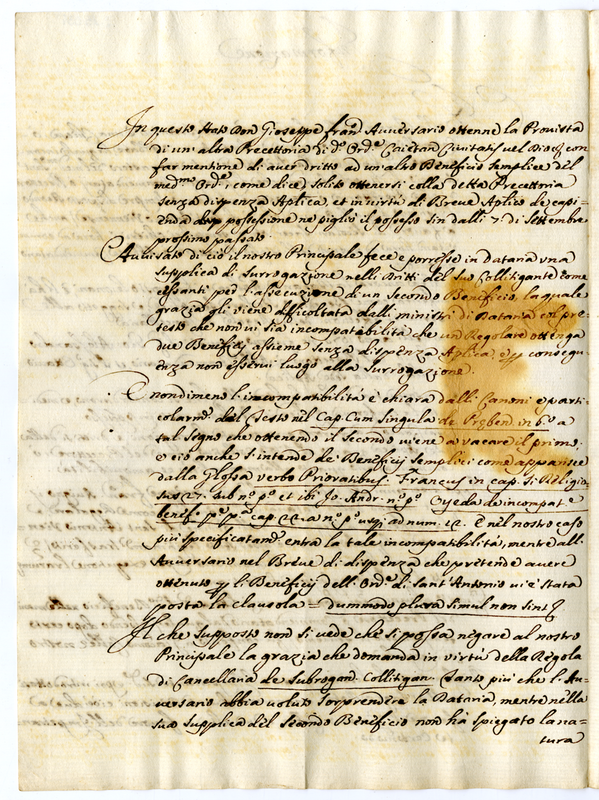 In questo stato Don Gioseppe Fran.º Avversario ottenne la Provista
di un' altra Precettoria di d.º Ord.e Caietan Civitatis vel Dioc. con
far mentione di aver dritto ad un' altro Beneficio Semplice del
med.mo Ord.e, come dice, solito ottenersi colla detta Precettoria
senza dispenza Aplica, et in virtù di Breve Aplico de capi=
enda possessione ne pigliò il possesso sin dalli 7. di Settembre
prossimo passato
Avvisato di ciò il nostro Principale fece porgere in Dataria una
Supplica di Surrogazione nelli Dritti del suo Collitigante come
cessanti per l'assecuzione di un Secondo Beneficio, la quale
grazia gli viene difficoltata dalli ministri di Dataria col pre=
testo che non vi sia incompatibilità che un Regolare ottenga
due Beneficij assieme senza dispenza Aplica, e per consegu=
enza non esservi luogo alla Surrogazione.
E nondimeno l'incompatibilità è chiara dalli Canoni e parti=
colarm.e dal Testo nel Cap. Cum Singula de Pręben. in 6.º a
tal segno che ottenendo il secondo viene a vacare il primo,
e ciò anche s'intende de Beneficij Semplici come apparisce
dalla Glossa verbo Prioratibus. Francus in cap. Si Religio=
sus 27. sub n.º p.º et ibi Jo: Andr. n.º p.º de incompat.e
benef. p.e p.a cap. a n.º p.º usq; ad num. 12. E nel nostro caso
più specificatam.e entra la tale incompatibilità, mentre all'
Avversario nel Breve di dispenza che pretende avere
ottenuto per li Beneficij dell' Ord.e di Sant'Antonio vi è stata
posta la clausola = dummodo plura simul non sint
Il che supposto non si vede che si possa negare al nostro
Principale la grazia che domanda in virtù della Regola
di Cancellaria de Subrogan. Collitigan. Tanto più che l'Av=
versario abbia voluto sorprendere la Dataria, mentre nella
sua supplica del Secondo Beneficio non hà spiegato la na=
tura